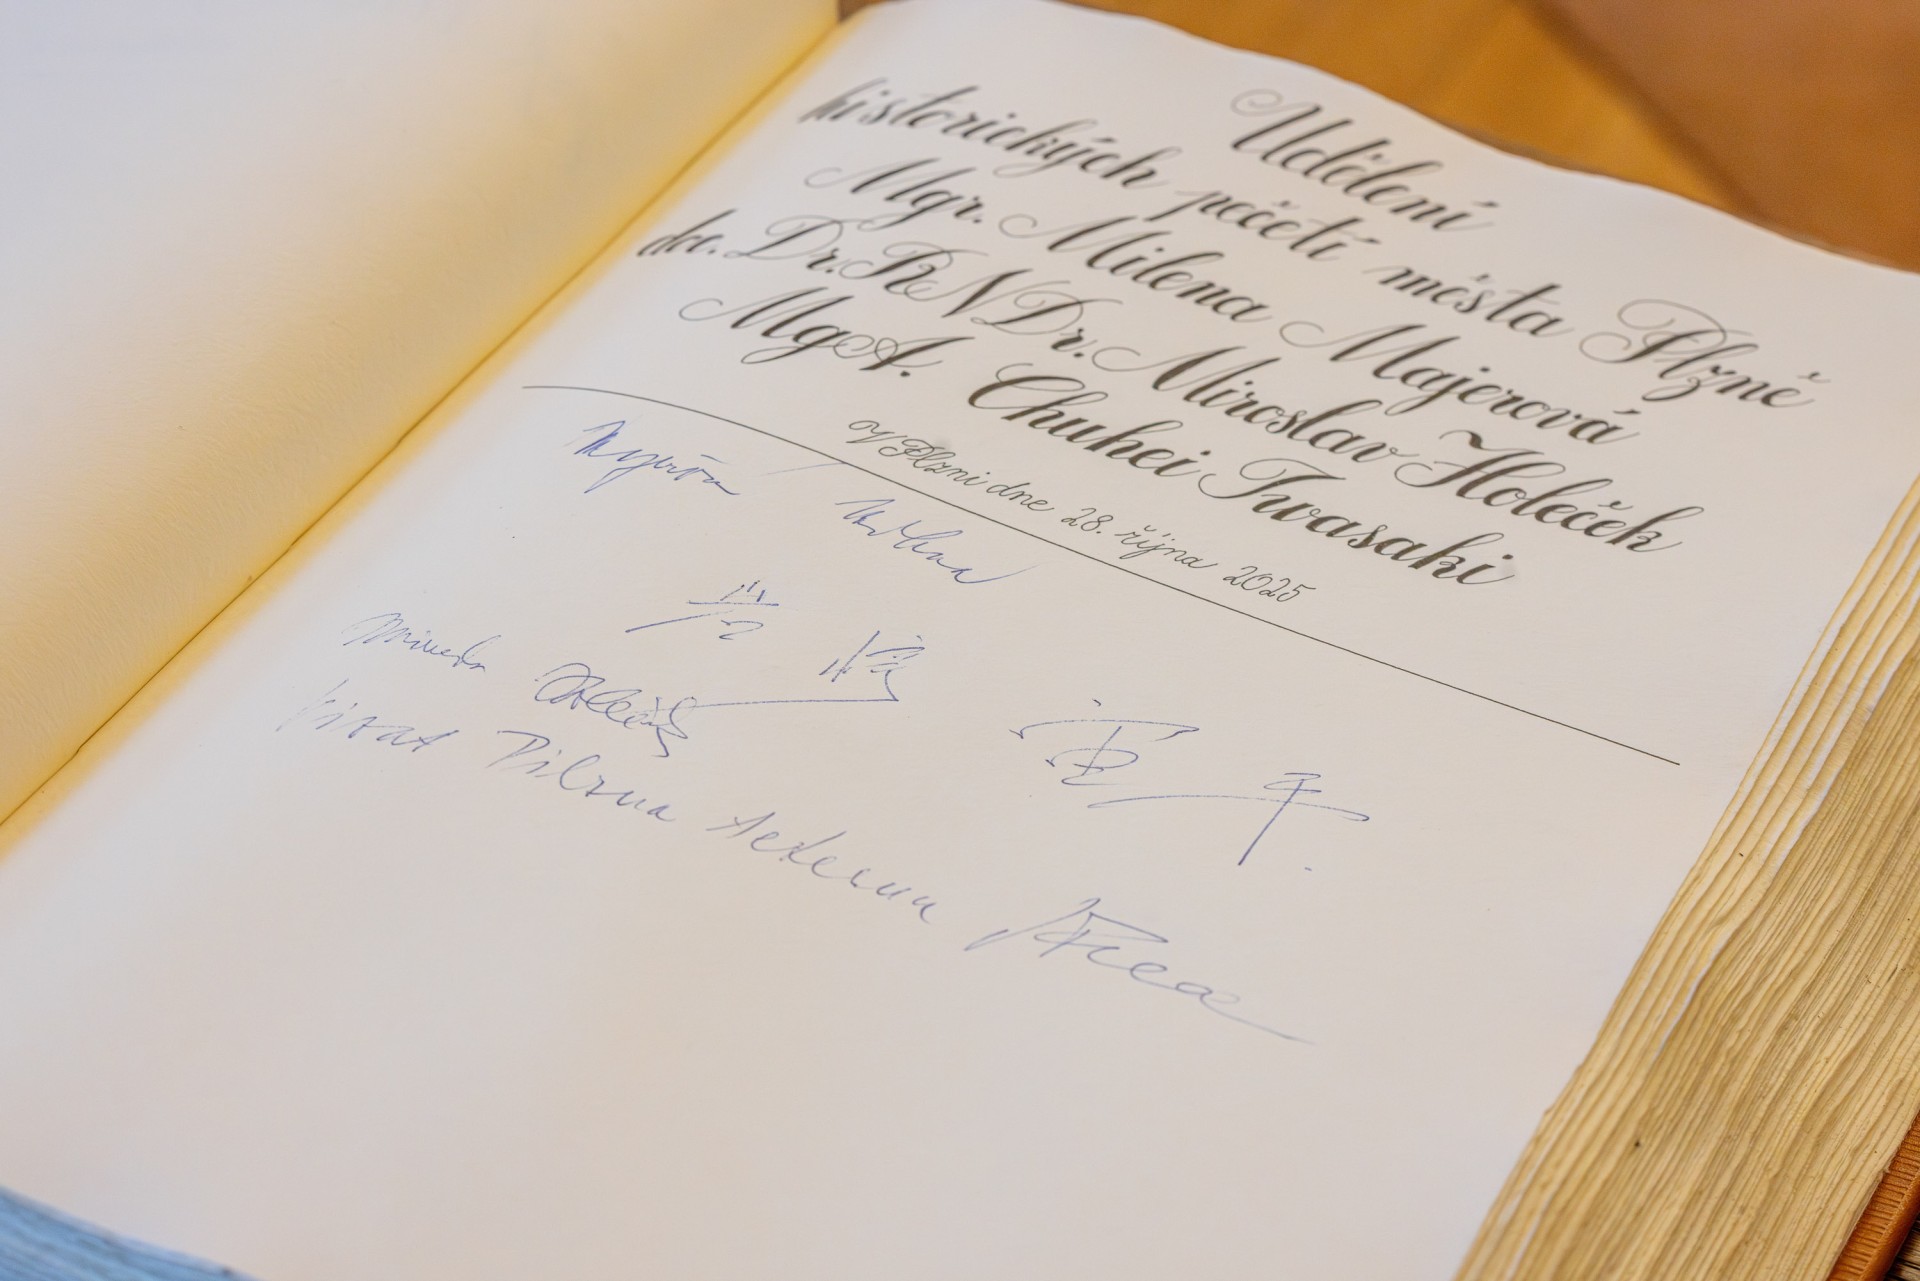 Udělení
historických pečetí města Plzně
Mgr. Milena Majerová
doc. Dr. RNDr. Miroslav Holeček
MgA. Chuhei Iwasaki
V Plzni dne 28. října 2025
Milena
平
Vivat Pilzna aeterna